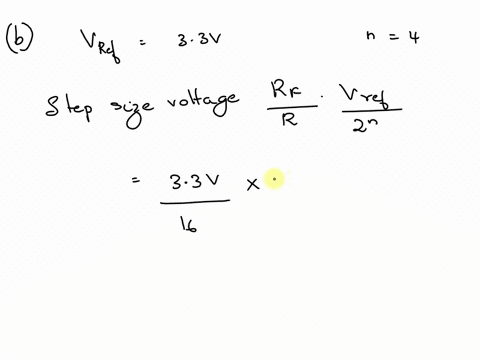 (b) V_Ref = 3.3V n = 4
Step size voltage R_F/R · V_ref/2^n
= 3.3V/16 ×